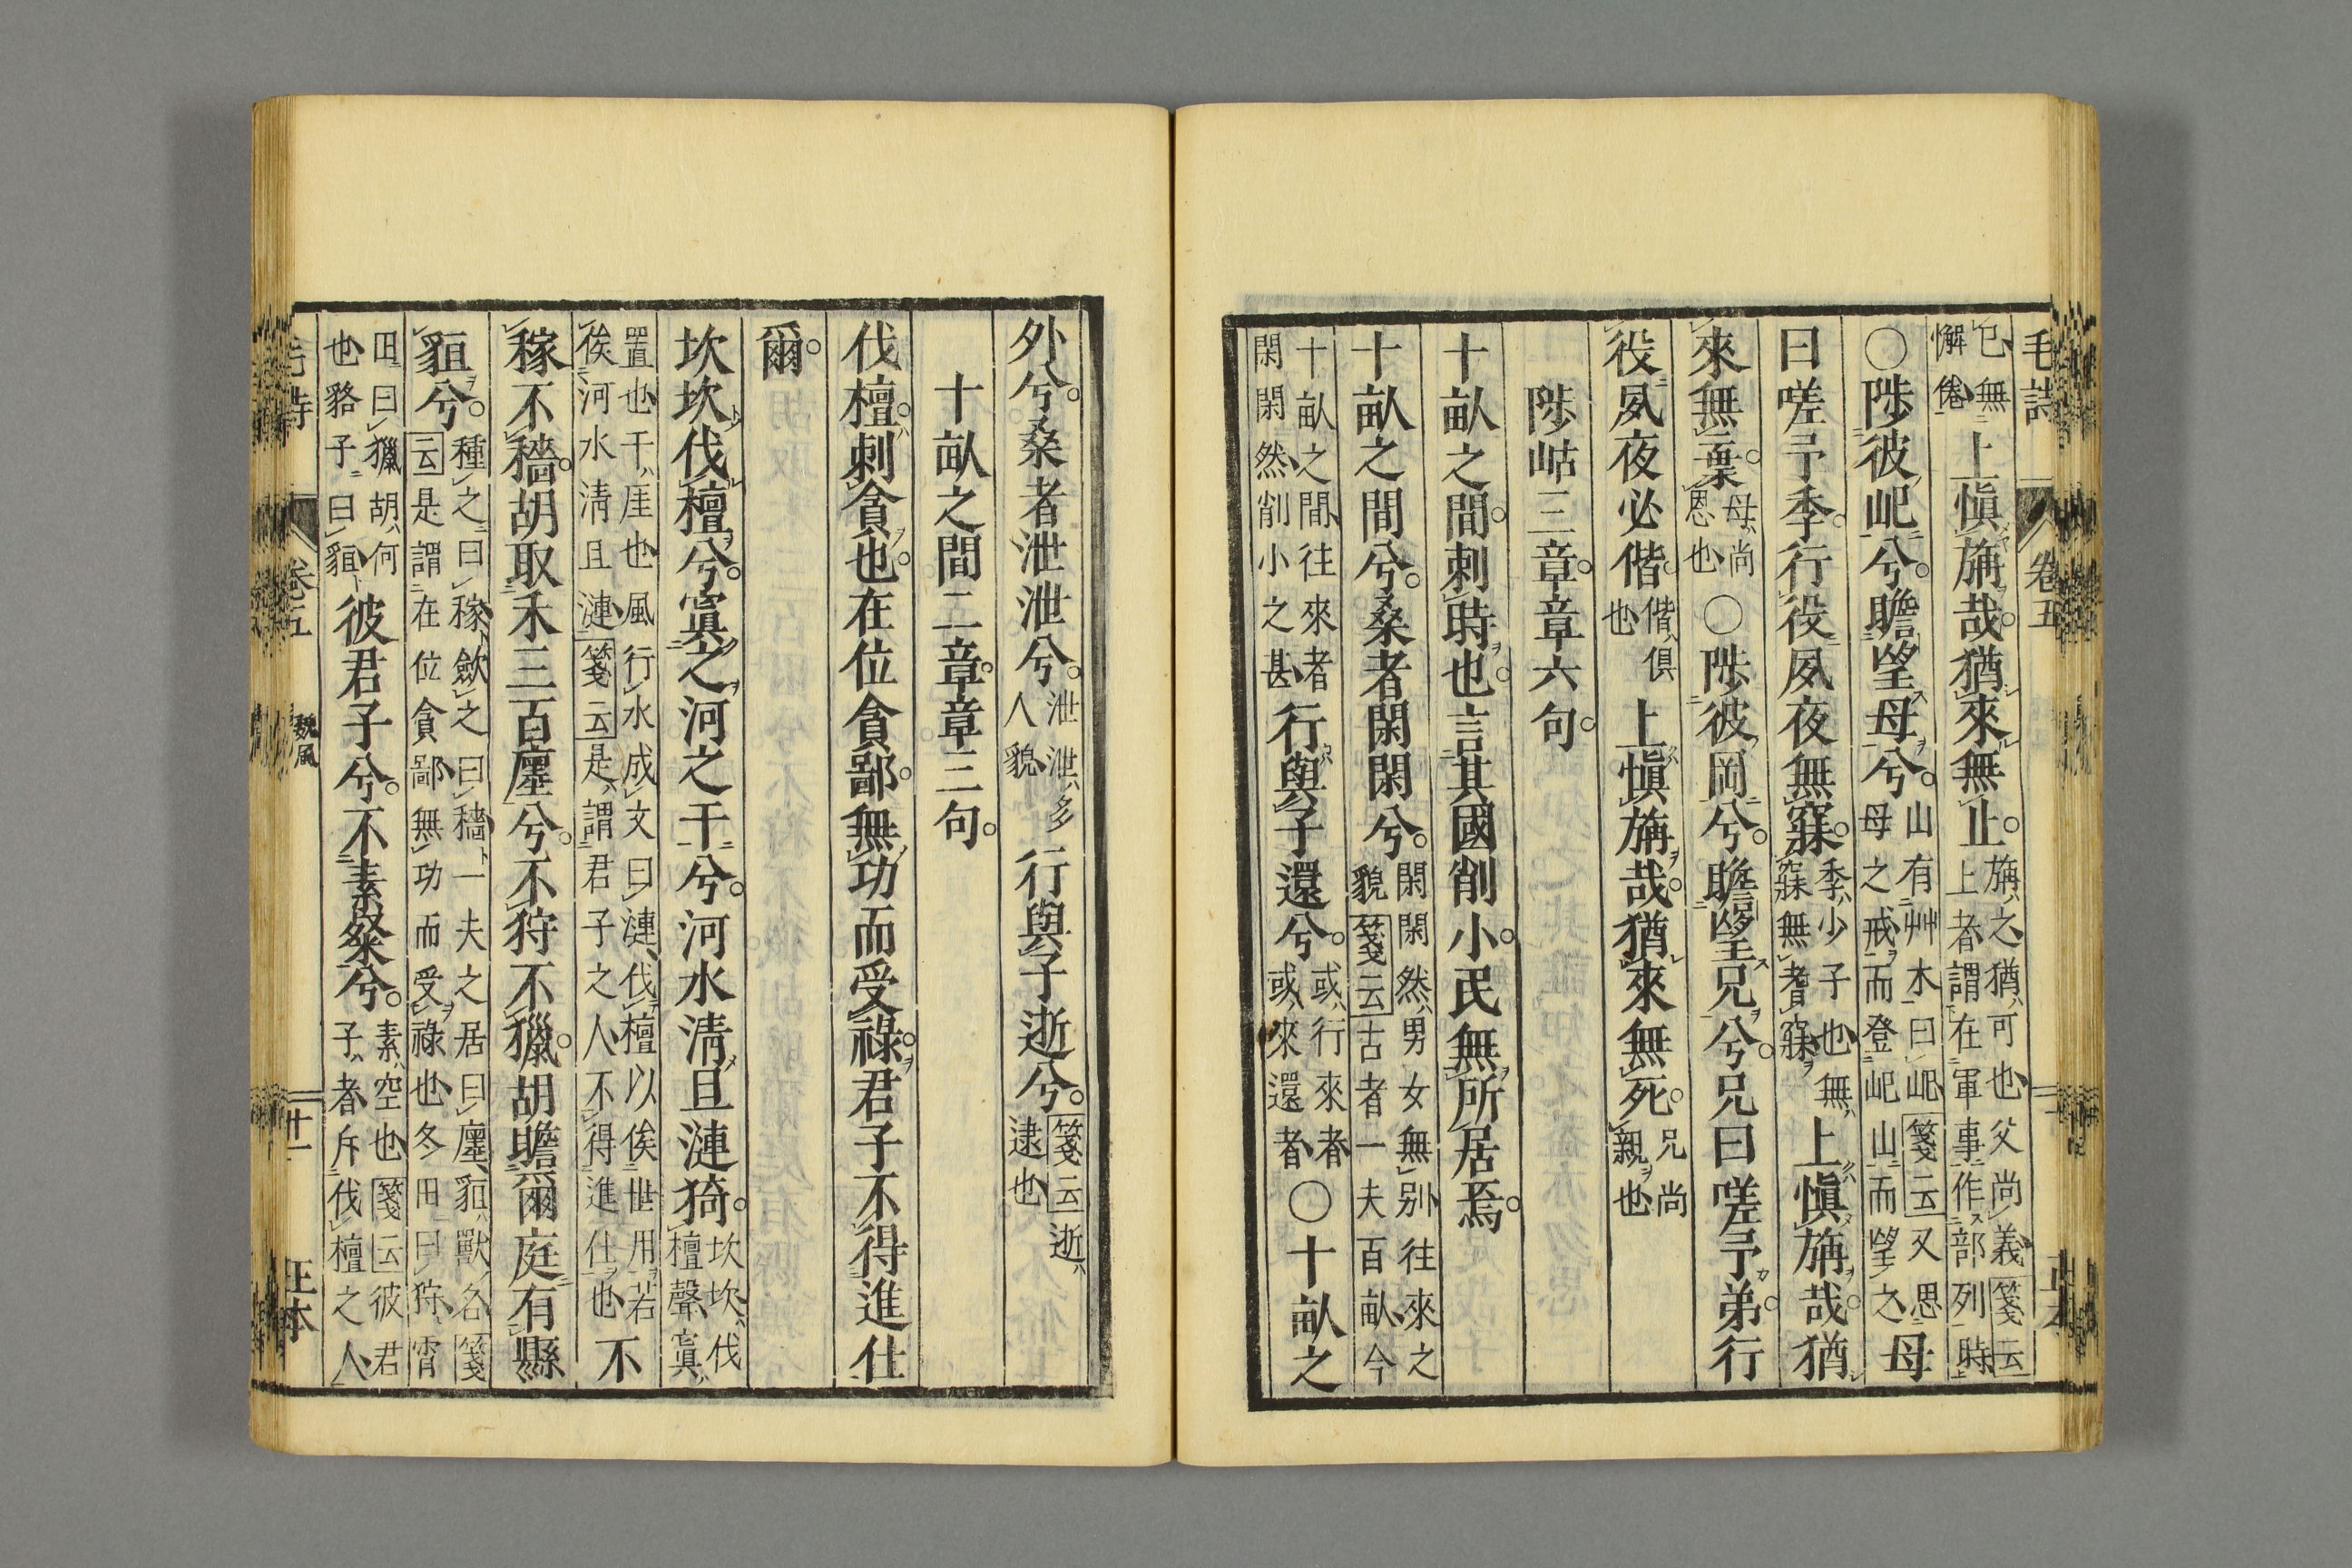 毛詩 卷五
已無懈倦上慎旃哉猶來無止旃之猶可也父尚義箋云上者謂在軍事作部列時
○陟彼屺兮瞻望母兮山有艸木曰屺箋云又思母之戒而登屺山而望之母
曰嗟予季行役夙夜無寐季少子也無寐無耆寐上慎旃哉猶
來無棄母尚恩也○陟彼岡兮瞻望兄兮兄曰嗟予弟行
役夙夜必偕偕俱也上慎旃哉猶來無死兄尚親也
陟岵三章章六句
十畝之間刺時也言其國削小民無所居焉
十畝之間兮桑者閑閑兮閑閑然男女無別往來之貌箋云古者一夫百畝今
十畝之間往來者閑閑然削小之甚行與子還兮或行來者或來還者○十畝之
外兮桑者泄泄兮泄泄多人貌行與子逝兮箋云逝逮也
十畝之間二章章三句
伐檀刺貪也在位貪鄙無功而受祿君子不得進仕
爾
坎坎伐檀兮寘之河之干兮河水淸且漣猗坎坎伐檀聲寘
置也干厓也風行水成文曰漣伐檀以俟世用若俟河水淸且漣箋云是謂君子之人不得進仕也不
稼不穡胡取禾三百廛兮不狩不獵胡瞻爾庭有縣
貆兮種之曰稼歛之曰穡一夫之居曰廛貆獸名箋云是謂在位貪鄙無功而受祿也冬田曰狩宵
田曰獵胡何也貉子曰貆彼君子兮不素粲兮素空也箋云彼君子者斥伐檀之人
毛詩 卷五 魏風 十一 正本